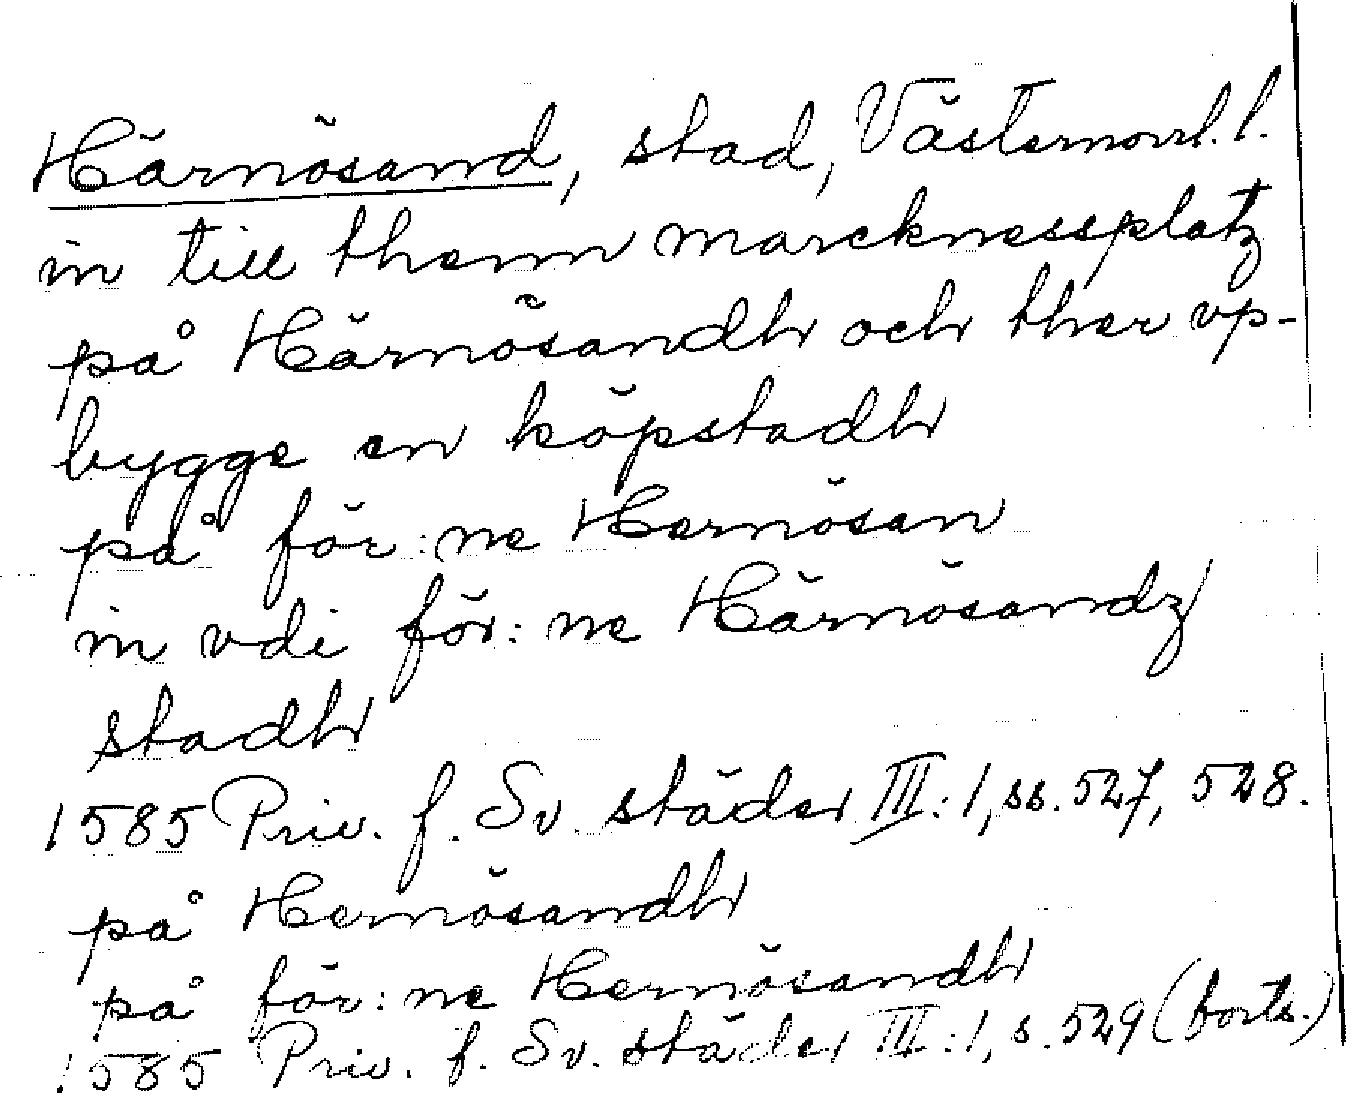 Härnösand, stad, Västernorrl. l.
in till thenn marcknessplatz
på Härnösandh och ther vp-
bygge en köpstadh
på för:ne Hernösan
in vdi för:ne Härnösandz
stadh
1585 Priv. f. Sv. städer III:1, ss. 527, 528.
på Hernösandh
på för:ne Hernösandh
1585 Priv. f. Sv. städer III:1, s. 529 (forts.)